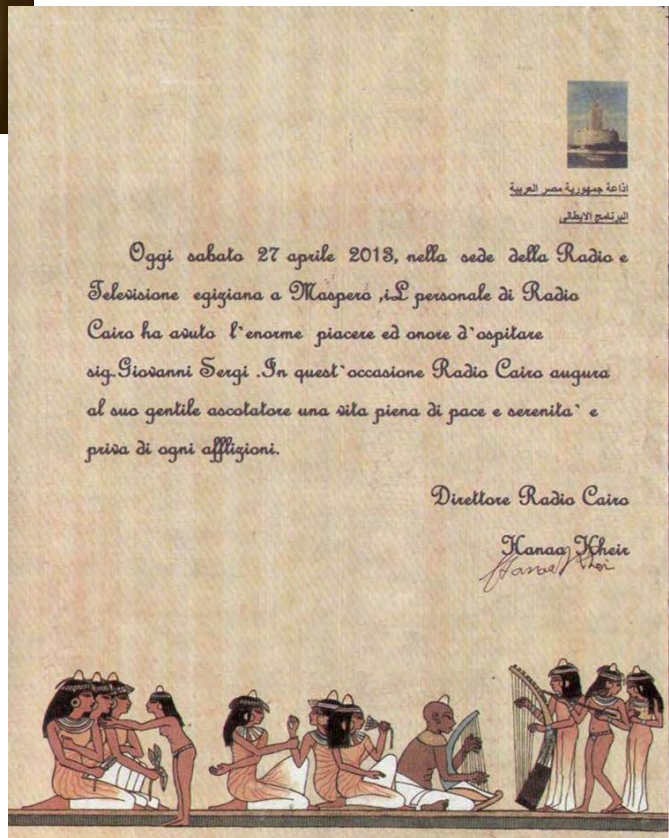 اذاعة جمهورية مصر العربية
البرنامج الايطالى
Oggi sabato 27 aprile 2013, nella sede della Radio e
Televisione egiziana a Maspero ,iL personale di Radio
Cairo ha avuto l`enorme piacere ed onore d`ospitare
sig.Giovanni Sergi .In quest`occasione Radio Cairo augura
al suo gentile ascotatore una vita piena di pace e serenita` e
priva di ogni afflizioni.
Direttore Radio Cairo
Hanaa Kheir
Hanaa Kheir